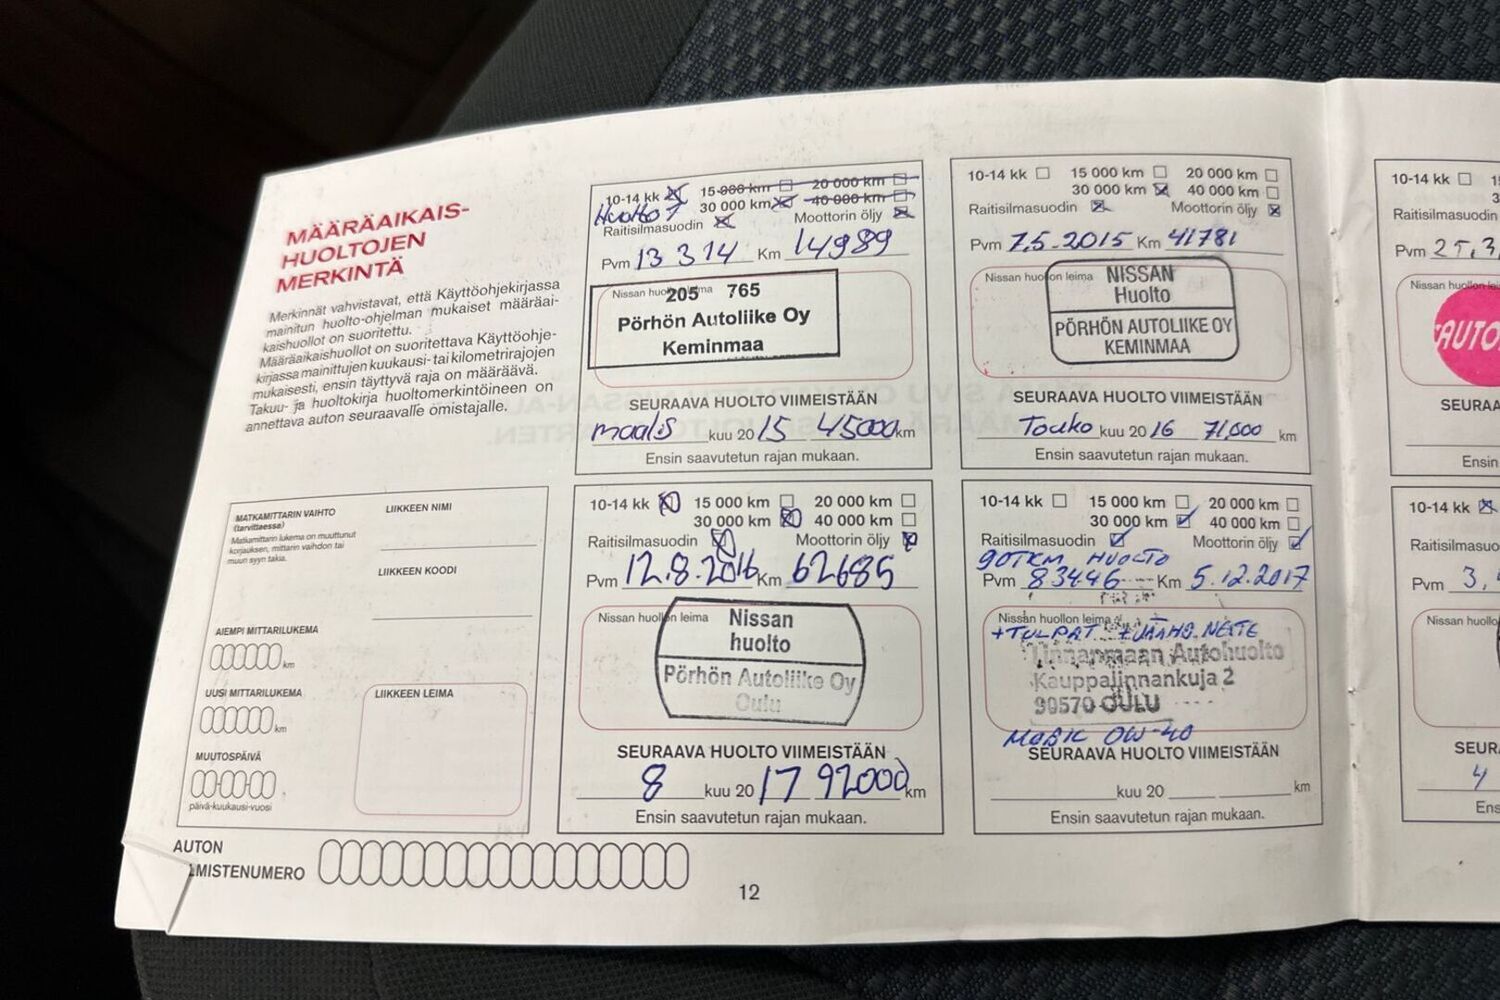 MÄÄRÄAIKAIS-
HUOLTOJEN
MERKINTÄ
Merkinnät vahvistavat, että Käyttöohjekirjassa
mainitun huolto-ohjelman mukaiset määräai-
kaishuollot on suoritettu.
Määräaikaishuollot on suoritettava Käyttöohje-
kirjassa mainittujen kuukausi- tai kilometrirajojen
mukaisesti, ensin täyttyvä raja on määräävä.
Takuu- ja huoltokirja huoltomerkintöineen on
annettava auton seuraavalle omistajalle.
10-14 kk 15 000 km 20 000 km
30 000 km 40 000 km
Huolto
Raitisilmasuodin Moottorin öljy
Pvm 13 3 14 Km 14989
Nissan huollon leima
205 765
Pörhön Autoliike Oy
Keminmaa
SEURAAVA HUOLTO VIIMEISTÄÄN
maalis kuu 20 15 45000 km
Ensin saavutetun rajan mukaan.
10-14 kk 15 000 km 20 000 km
30 000 km 40 000 km
Raitisilmasuodin Moottorin öljy
Pvm 7.5-2015 Km 41781
Nissan huollon leima
NISSAN
Huolto
PÖRHÖN AUTOLIIKE OY
KEMINMAA
SEURAAVA HUOLTO VIIMEISTÄÄN
Touko kuu 20 16 71,000 km
Ensin saavutetun rajan mukaan.
10-14 kk
Raitisilmasuodin
Pvm
Nissan huollon
AUTO
SEURAA
Ensin
MATKAMITTARIN VAIHTO
(tarvittaessa)
Matkamittarin lukema on muuttunut
korjauksen, mittarin vaihdon tai
muun syyn takia.
LIIKKEEN NIMI
LIIKKEEN KOODI
AIEMPI MITTARILUKEMA
km
UUSI MITTARILUKEMA
km
MUUTOSPÄIVÄ
päivä-kuukausi-vuosi
LIIKKEEN LEIMA
10-14 kk 15 000 km 20 000 km
30 000 km 40 000 km
Raitisilmasuodin Moottorin öljy
Pvm 12.8.2016 Km 62685
Nissan huollon leima
Nissan
huolto
Pörhön Autoliike Oy
Oulu
SEURAAVA HUOLTO VIIMEISTÄÄN
8 kuu 20 17 92000 km
Ensin saavutetun rajan mukaan.
10-14 kk 15 000 km 20 000 km
30 000 km 40 000 km
Raitisilmasuodin Moottorin öljy
90TKM HUOLTO
Pvm 83446 Km 5.12.2017
Nissan huollon leima
+TULPAT +JÄÄHD.NESTE
Autohuolto
Kauppalinnankuja 2
90570 OULU
MOBIL 0W-40
SEURAAVA HUOLTO VIIMEISTÄÄN
kuu 20 km
Ensin saavutetun rajan mukaan.
10-14 kk
Raitisilmasuo
Pvm 3,
Nissan huollo
SEUR
4
Ens
AUTON
MISTENUMERO
12